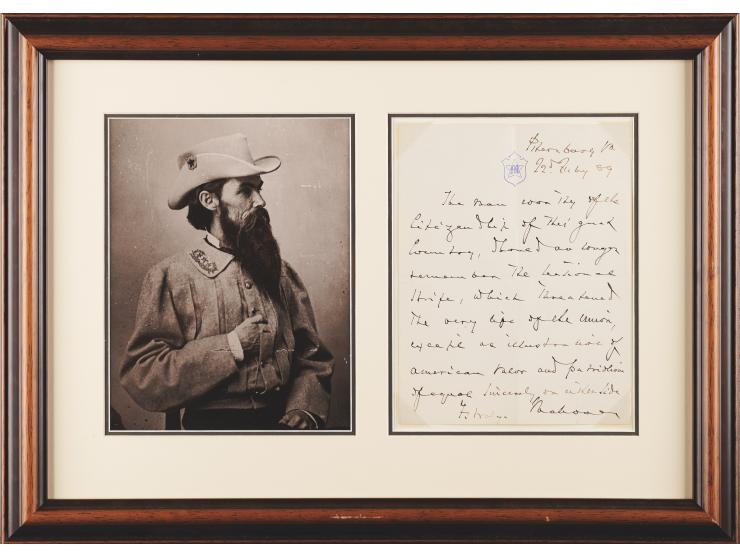 Petersburg Va.
22d Feby 89
The man worthy of the
citizenship of this great
Country, should no longer
remember the National
Strife, which threatened
the very life of the Union,
except as illustrative of
American valor and patriotism
of equal sincerity on either side
Mahone